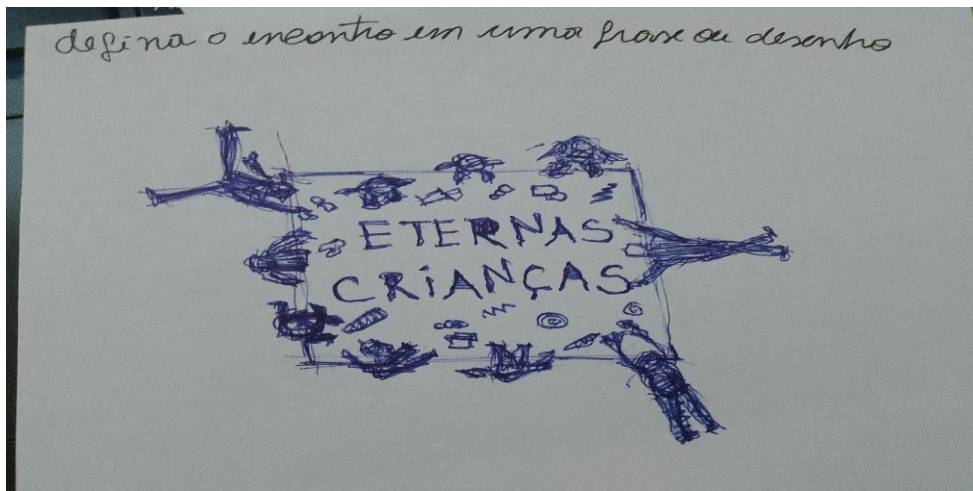 defina o encontro em uma frase ou desenho
ETERNAS
CRIANÇAS